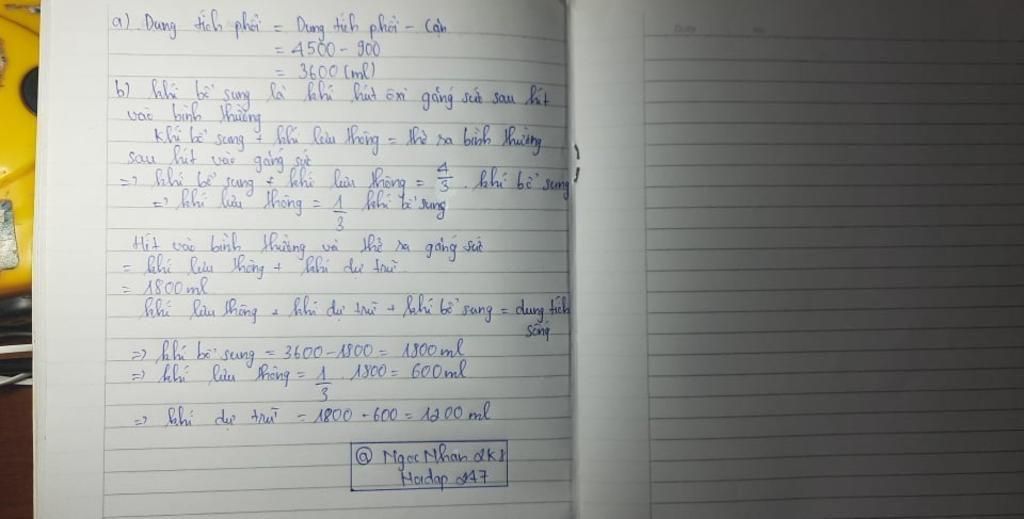 a) Dung tích phổi = Dung tích phổi - Cặn
= 4500 - 900
= 3600 (ml)
b) khí bổ sung là khí hút oxi gắng sức sau hít
vào bình thường
Khí bổ sung + khí lưu thông = thở ra bình thường
sau hít vào gắng sức
=> khí bổ sung + khí lưu thông = 4/3 . khí bổ sung
=> khí lưu thông = 1/3 khí bổ sung
Hít vào bình thường và thở ra gắng sức
= khí lưu thông + khí dự trữ.
= 1800ml
khí lưu thông + khí dự trữ + khí bổ sung = dung tích
sống
=> khí bổ sung = 3600 - 1800 = 1800ml
=> khí lưu thông = 1/3 . 1800 = 600ml
=> khí dự trữ = 1800 - 600 = 1200ml
@ Ngọc Nhan 2k8
Hoidap 247